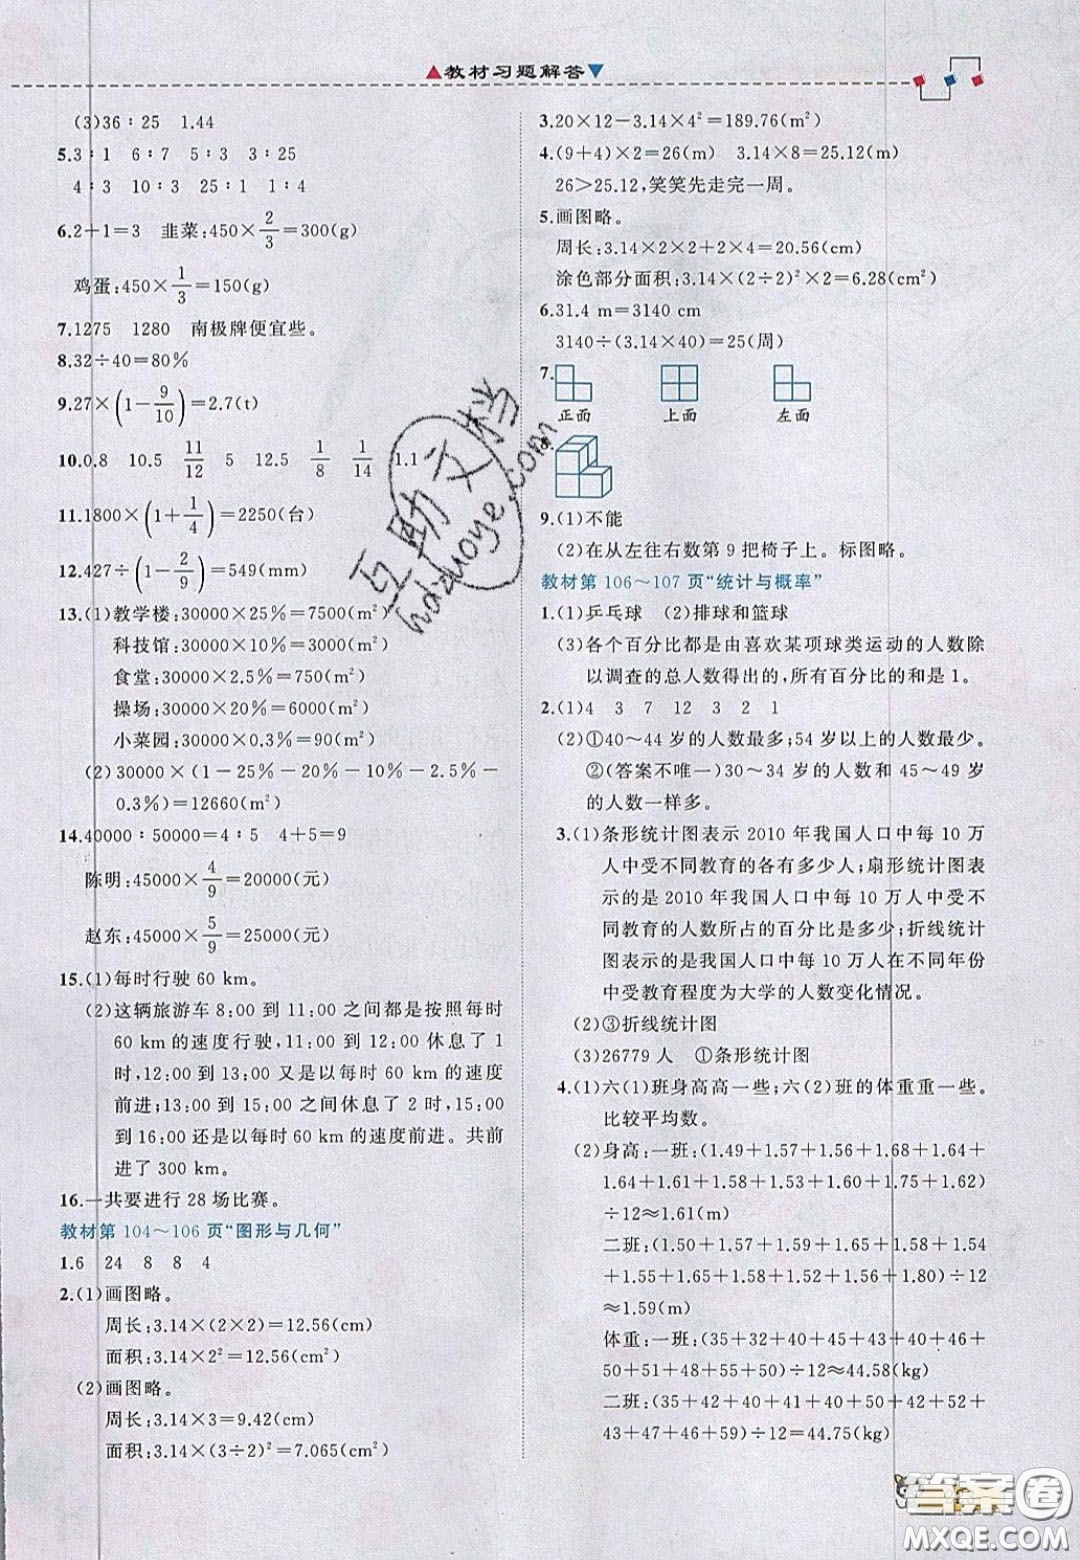 ▲教材习题解答▼
(3)36∶25 1.44
5.3∶1 6∶7 5∶3 3∶25
4∶3 10∶3 25∶1 1∶4
6.2+1=3 韭菜:450×2/3=300(g)
鸡蛋:450×1/3=150(g)
7.1275 1280 南极牌便宜些。
8.32÷40=80%
9.27×(1-9/10)=2.7(t)
10.0.8 10.5 11/12 5 12.5 1/8 1/14 1.1
11.1800×(1+1/4)=2250(台)
12.427÷(1-2/9)=549(mm)
13.(1)教学楼:30000×25%=7500(m²)
科技馆:30000×10%=3000(m²)
食堂:30000×2.5%=750(m²)
操场:30000×20%=6000(m²)
小菜园:30000×0.3%=90(m²)
(2)30000×(1-25%-20%-10%-2.5%-
0.3%)=12660(m²)
14.40000∶50000=4∶5 4+5=9
陈明:45000×4/9=20000(元)
赵东:45000×5/9=25000(元)
15.(1)每时行驶 60 km。
(2)这辆旅游车 8:00 到 11:00 之间都是按照每时
60 km 的速度行驶,11:00 到 12:00 休息了 1
时,12:00 到 13:00 又是以每时 60 km 的速度
前进;13:00 到 15:00 之间休息了 2 时,15:00
到 16:00 还是以每时 60 km 的速度前进。共前
进了 300 km。
16.一共要进行 28 场比赛。
教材第 104～106 页“图形与几何”
1.6 24 8 8 4
2.(1)画图略。
周长:3.14×(2×2)=12.56(cm)
面积:3.14×2²=12.56(cm²)
(2)画图略。
周长:3.14×3=9.42(cm)
面积:3.14×(3÷2)²=7.065(cm²)
3.20×12-3.14×4²=189.76(m²)
4.(9+4)×2=26(m) 3.14×8=25.12(m)
26>25.12,笑笑先走完一周。
5.画图略。
周长:3.14×2×2+2×4=20.56(cm)
涂色部分面积:3.14×(2÷2)²×2=6.28(cm²)
6.31.4 m=3140 cm
3140÷(3.14×40)=25(周)
7.
正面 上面 左面
8.
9.(1)不能
(2)在从左往右数第 9 把椅子上。标图略。
教材第 106～107 页“统计与概率”
1.(1)乒乓球 (2)排球和篮球
(3)各个百分比都是由喜欢某项球类运动的人数除
以调查的总人数得出的,所有百分比的和是 1。
2.(1)4 3 7 12 3 2 1
(2)①40～44 岁的人数最多;54 岁以上的人数最少。
②(答案不唯一)30～34 岁的人数和 45～49 岁
的人数一样多。
3.(1)条形统计图表示 2010 年我国人口中每 10 万
人中受不同教育的各有多少人;扇形统计图表
示的是 2010 年我国人口中每 10 万人中受不
同教育的人数所占的百分比是多少;折线统计
图表示的是我国人口中每 10 万人在不同年份
中受教育程度为大学的人数变化情况。
(2)③折线统计图
(3)26779 人 ①条形统计图
4.(1)六(1)班身高高一些;六(2)班的体重重一些。
比较平均数。
(2)身高:一班:(1.49+1.51+1.56+1.68+1.64+
1.62+1.64+1.65+1.60+1.61+1.75+1.57)
÷12≈1.61(m)
二班:(1.50+1.57+1.51+1.65+1.58+1.54
+1.55+1.55+1.65+1.68+1.64+1.60)÷12
≈1.59(m)
体重:一班:(35+32+40+45+43+40+46+
50+51+48+55+50)÷12≈44.58(kg)
二班:(35+42+40+41+37+42+50+54+
43+47+46+59)÷12=44.75(kg)
互助文档
hdzuoye.com
答案圈
MXQE.COM